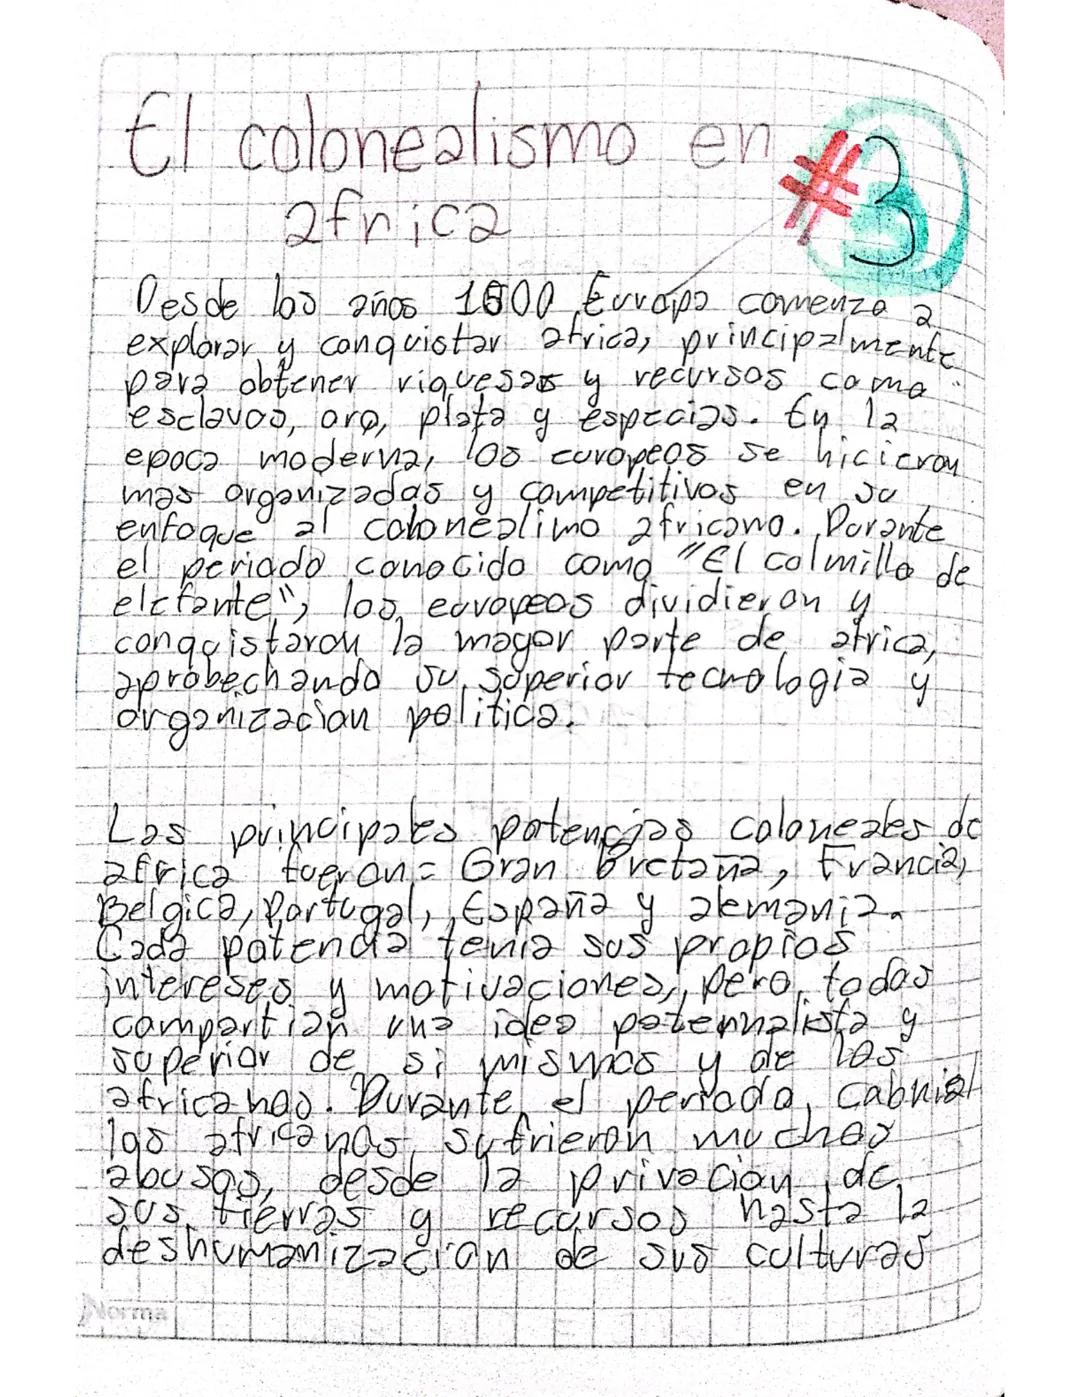 El colonealismo en
africa
#3
Desde los años 1500 Europa comenzo a
explorar y conquistar africa, principalmente
para obtener riquesas y recursos como
esclavos, oro, plata y especias. En la
epoca moderna, los europeos se hicieron
mas organizados y competitivos en su
enfoque al colonealimo africano. Durante
el periodo conocido como "El colmillo de
elefante", los europeos dividieron y
conquistaron la mayor parte de africa,
aprobechando su superior tecnologia y
organizacion politica.
Las principales potencias coloneales de
africa fueron= Gran Bretaña, Francia,
Belgica, Portugal, España y alemania.
Cada potencia tenia sus propios
intereses y motivaciones, pero todas
compartian una idea paternalista y
superior de si mismos y de los
africanos. Durante el periodo colonial
los africanos sufrieron muchos
abusos, desde la privacion de
sus tierras y recursos hasta la
deshumanizacion de sus culturas
Norma